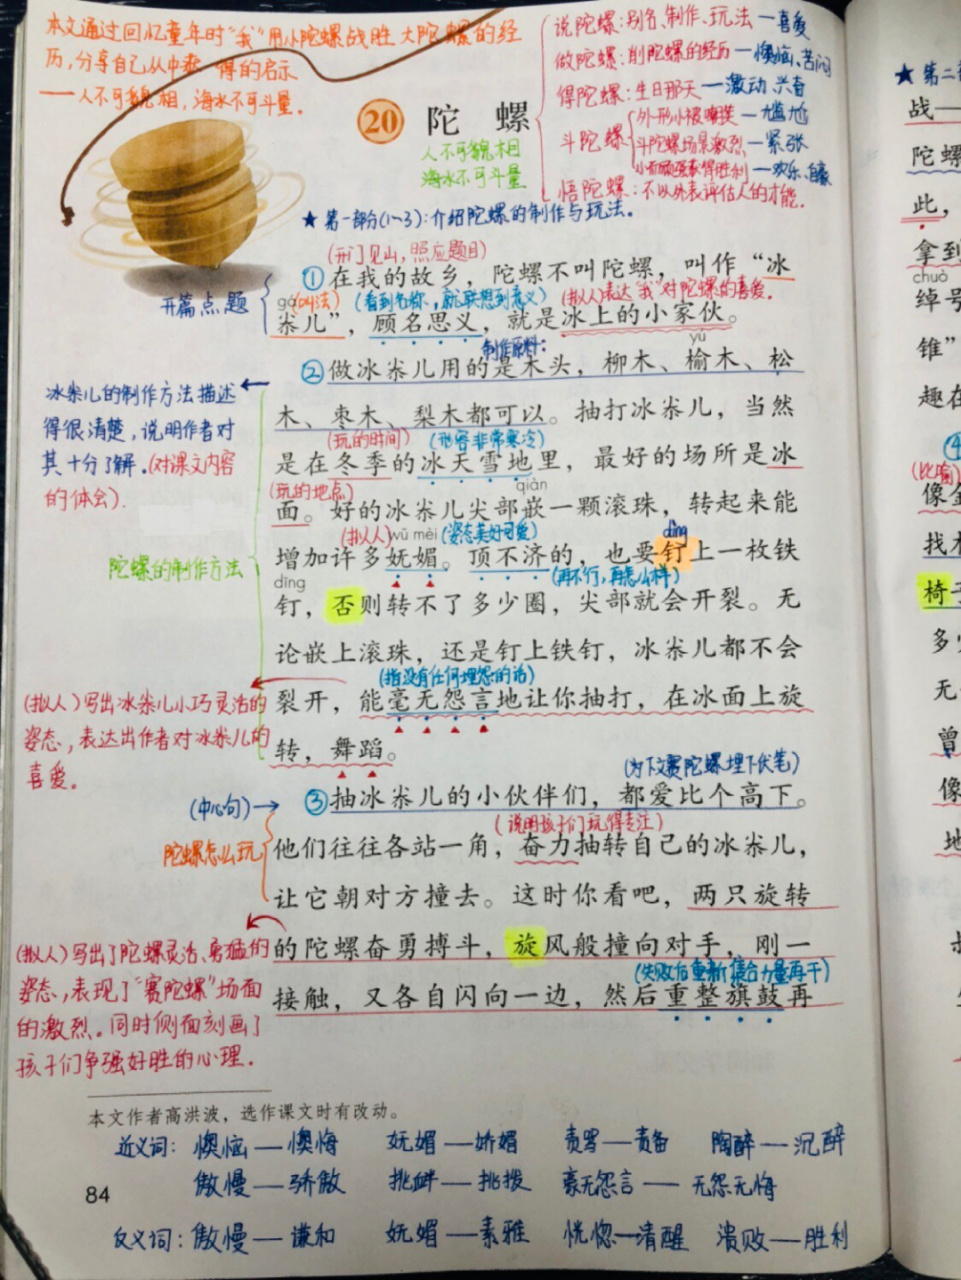 本文通过回忆童年时"我"用小陀螺战胜大陀螺的经
历,分享自己从中获得的启示
——人不可貌相,海水不可斗量。
说陀螺:别名、制作、玩法—喜爱
做陀螺:削陀螺的经历—懊恼、苦闷
得陀螺:生日那天—激动、兴奋
斗陀螺
外形小被嘲笑—尴尬
斗陀螺场景激烈—紧张
小而顽强获得胜利—欢乐、自豪
悟陀螺:不以外表评估人的才能。
20 陀螺
人不可貌相
海水不可斗量
★第一部分(1~3):介绍陀螺的制作与玩法。
(开门见山,照应题目)
①在我的故乡,陀螺不叫陀螺,叫作“冰
开篇点题
gá
(叫法)
(看到名称,就联想到意义)
(拟人)表达"我"对陀螺的喜爱。
尜儿”,顾名思义,就是冰上的小家伙。
制作原料:
yú
②做冰尜儿用的是木头,柳木、榆木、松
冰尜儿的制作方法描述
得很清楚,说明作者对
其十分了解.(对课文内容
的体会).
木、枣木、梨木都可以。抽打冰尜儿,当然
(玩的时间)
(形容非常寒冷)
是在冬季的冰天雪地里,最好的场所是冰
(玩的地点)
qiàn
面。好的冰尜儿尖部嵌一颗滚珠,转起来能
(拟人)
wǔ mèi
(姿态美好可爱)
dìng
陀螺的制作方法
增加许多妩媚。顶不济的,也要钉上一枚铁
dīng
(再不行,再怎么样)
钉,否则转不了多少圈,尖部就会开裂。无
论嵌上滚珠,还是钉上铁钉,冰尜儿都不会
(指没有任何埋怨的话)
裂开,能毫无怨言地让你抽打,在冰面上旋
(拟人)写出冰尜儿小巧灵活的
姿态,表达出作者对冰尜儿的
喜爱。
转,舞蹈。
(为下文赛陀螺埋下伏笔)
(中心句)→
③抽冰尜儿的小伙伴们,都爱比个高下。
(说明孩子们玩得专注)
陀螺怎么玩
他们往往各站一角,奋力抽转自己的冰尜儿,
让它朝对方撞去。这时你看吧,两只旋转
的陀螺奋勇搏斗,旋风般撞向对手,刚一
(拟人)写出了陀螺灵活、勇猛的
姿态,表现了"赛陀螺"场面
的激烈。同时侧面刻画了
孩子们争强好胜的心理.
(失败后重新集合力量再干)
接触,又各自闪向一边,然后重整旗鼓再
本文作者高洪波,选作课文时有改动。
近义词:懊恼—懊悔 妩媚—娇媚 责骂—责备 陶醉—沉醉
傲慢—骄傲 挑衅—挑拨 豪无怨言—无怨无悔
84
反义词:傲慢—谦和 妩媚—素雅 恍惚—清醒 溃败—胜利
★第二
战—
陀螺
此,
拿到
chuò
绰号
锥”
趣在
④
(比喻)
像金
找木
椅子
多少
无
曾
像
地